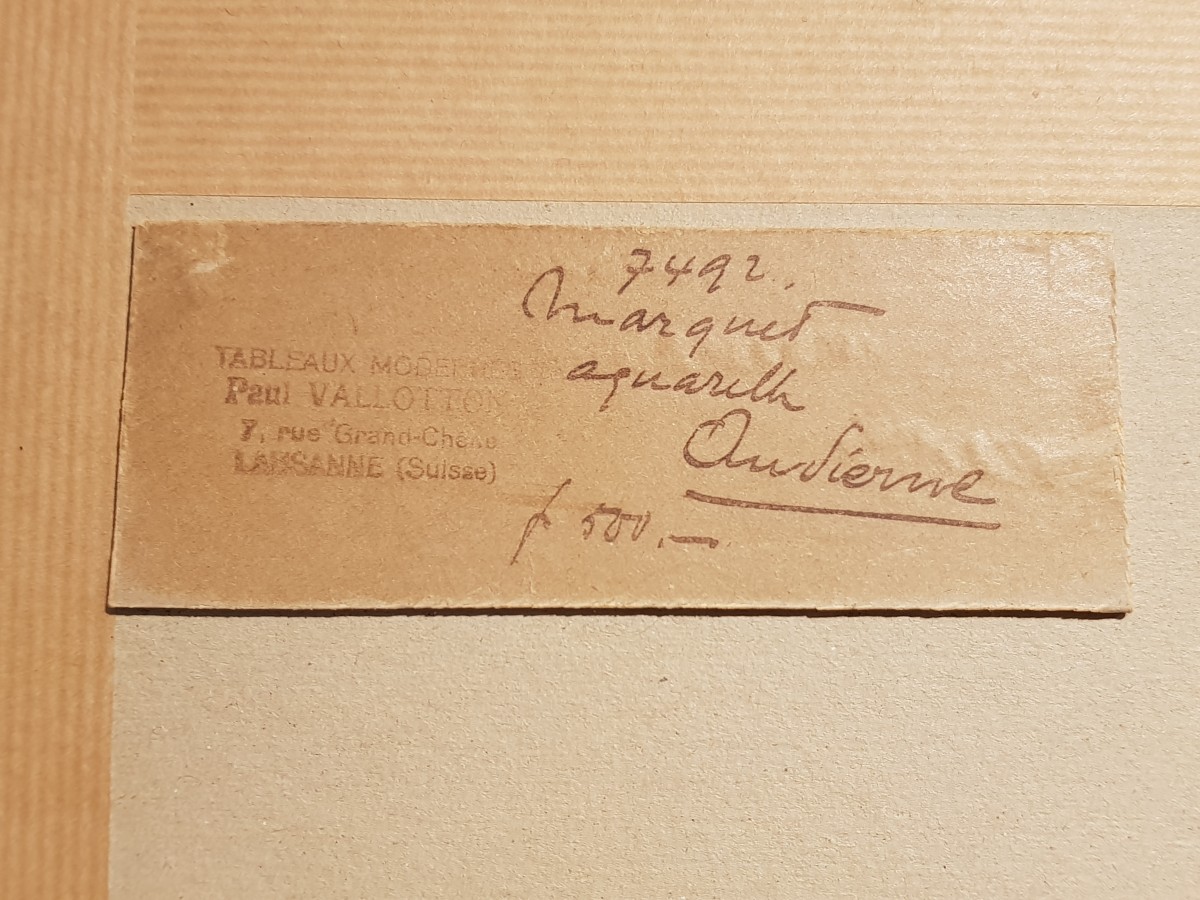 7492.
Marquet
aquarelle
Audierne
f 500.—
TABLEAUX MODERNES
Paul VALLOTTON
7, rue Grand-Chêne
LAUSANNE (Suisse)